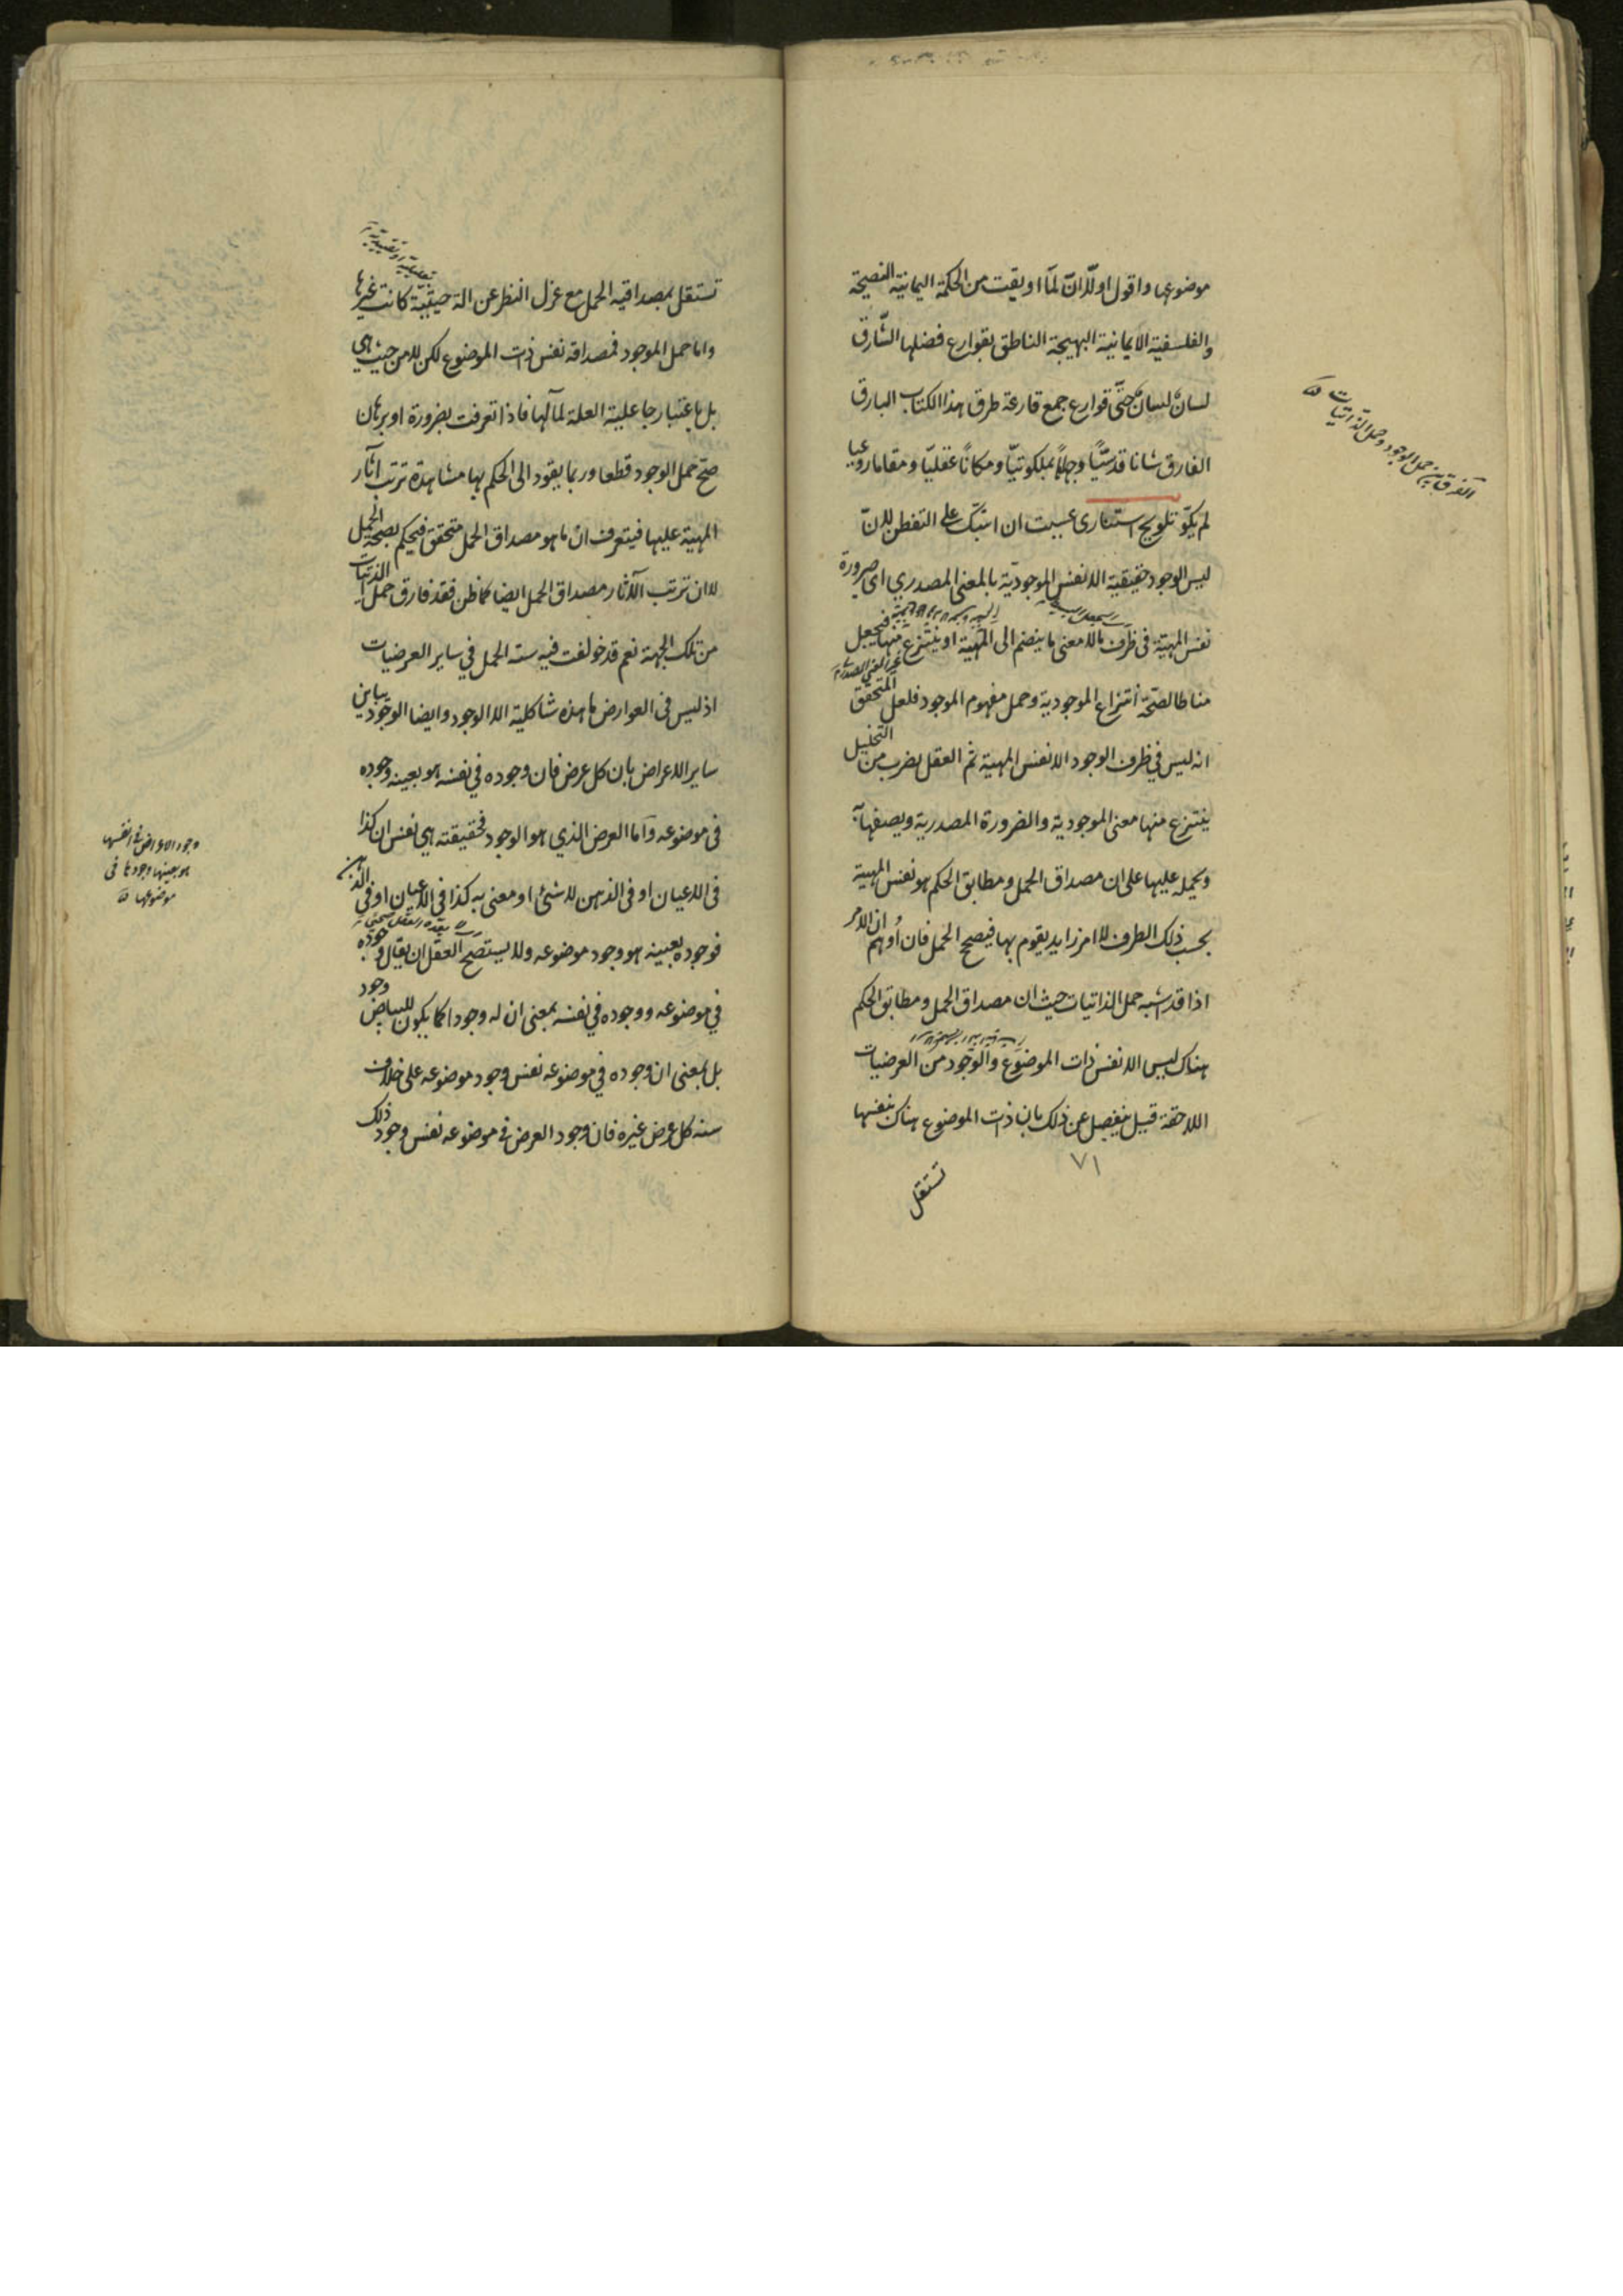 موضوعها واقول اولا ان لما اوتيت من الحكمة اليمانية النضيجة
والفلسفية الايمانية البهيجة الناطق بقوارع فضلها الشارق
لسان لسان حتى قوارع جمع قارعة طرق هذا الكتاب البارق
الفارق شانا قدسيا وجها ملكوتيا ومكانا عقليا ومقاما
لم يكو تلويح استناري عسيت ان على التفطن لان
ليس الوجود حقيقية الا نفس الموجودية بالمعنى المصدري اى صيرورة
نفس المهية في ظرف ما لا معنى ما ينضم الى المهية او ينتزع منها فيجعل
مناطا لصحة انتزاع الموجودية وحمل مفهوم الموجود فلعل المتحقق
انه ليس في ظرف الوجود الا نفس المهية ثم العقل بضرب من التحليل
ينتزع منها معنى الموجودية والضرورة المصدرية ويصفها به
ويحمله عليها على ان مصداق الحمل ومطابق الحكم هو نفس المهية
بحسب ذلك الظرف لا امر زايد يقوم بها فيصح الحمل فان اوهم ان الامر
اذا قد اشبه حمل الذاتيات حيث ان مصداق الحمل ومطابق الحكم
هناك ليس الا نفس ذات الموضوع والوجود من العرضيات
اللاحقة قيل ينفصل عن ذلك بان ذات الموضوع هناك بنفسها
٧١
تستقل
الفرق بين حمل الوجود وحمل الذاتيات
تعليلية او تقييدية
تستقل بمصداقية الحمل مع عزل النظر عن اية حيثية كانت غيرها
واما حمل الموجود فمصداقه نفس ذات الموضوع لكن لا من حيث هي
بل باعتبار جاعلية العلة لما لها فاذا تعرفت بضرورة او برهان
صح حمل الوجود قطعا وربما يقود الى الحكم بها مشاهدة ترتب اثار
المهية عليها فيتعرف ان ما هو مصداق الحمل متحقق فيحكم بصحة الحمل
لا ان ترتب الآثار مصداق الحمل ايضا كما ظن فقد فارق حمل الذاتيات
من تلك الجهة نعم قد خولفت فيه سنة الحمل في ساير العرضيات
اذ ليس في العوارض ما هذه شاكلته الا الوجود وايضا الوجود يباين
ساير الاعراض بان كل عرض فان وجوده في نفسه هو بعينه وجوده
في موضوعه واما العرض الذي هو الوجود فحقيقته هي نفس ان كذا
في الاعيان او في الذهن لا شئ او معنى به كذا في الاعيان او في الذهن
فوجوده بعينه هو وجود موضوعه ولا يستصح العقل ان يقال وجوده
في موضوعه ووجوده في نفسه بمعنى ان له وجودا كما يكون للبياض وجود
بل بمعنى ان وجوده في موضوعه نفس وجود موضوعه على خلاف
سنه كل عرض غيره فان وجود العرض في موضوعه نفس وجود ذلك
وجود الاعراض في انفسها
هو بعينها وجودها في
موضوعها